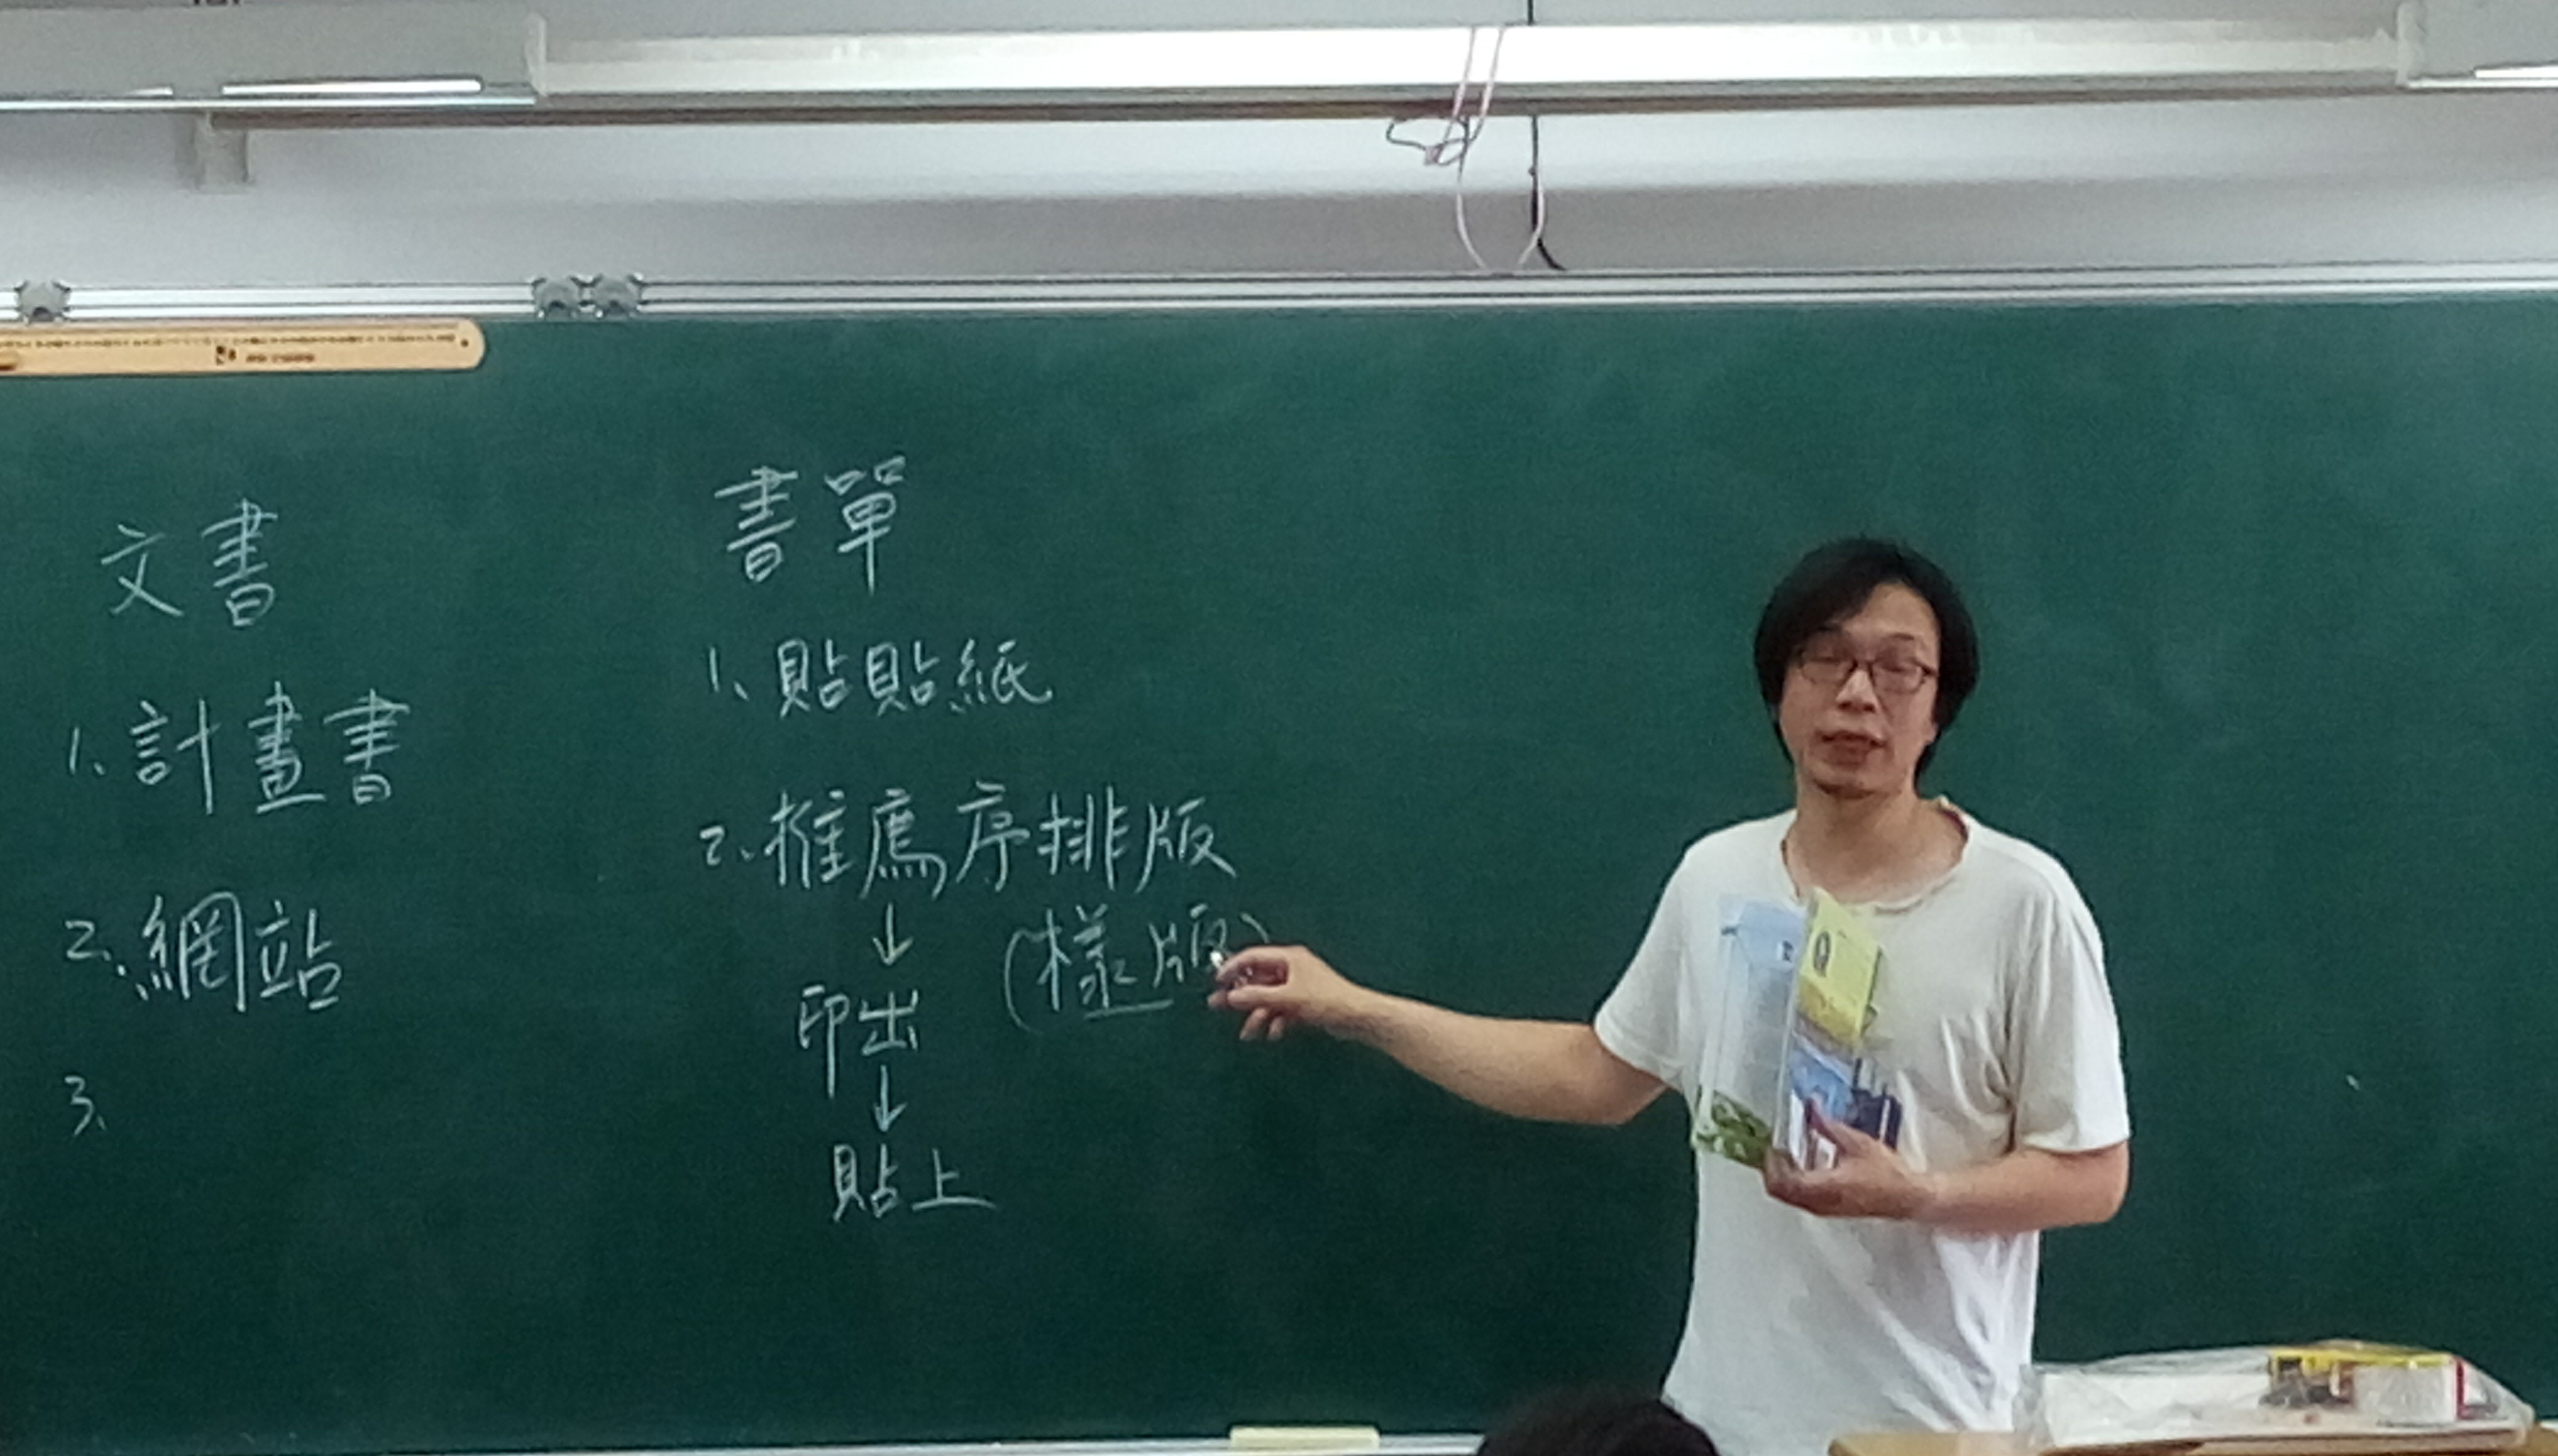 文書
1、計畫書
2、網站
3、
書單
1、貼貼紙
2、推薦序排版
↓
(樣版)
印出
↓
貼上